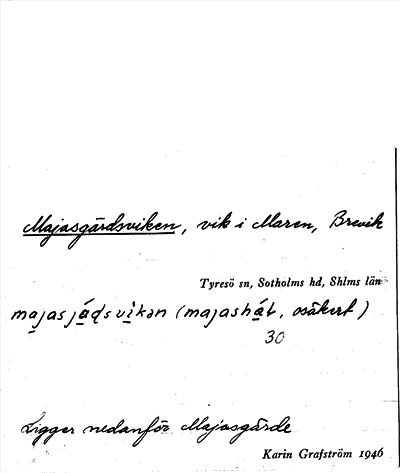 Majasgärdsviken, vik i Maren, Brevik
Tyresö sn, Sotholms hd, Shlms län
majasjáḍsvìkən (majashát, osäkert)
30
Ligger nedanför Majasgärde
Karin Grafström 1946